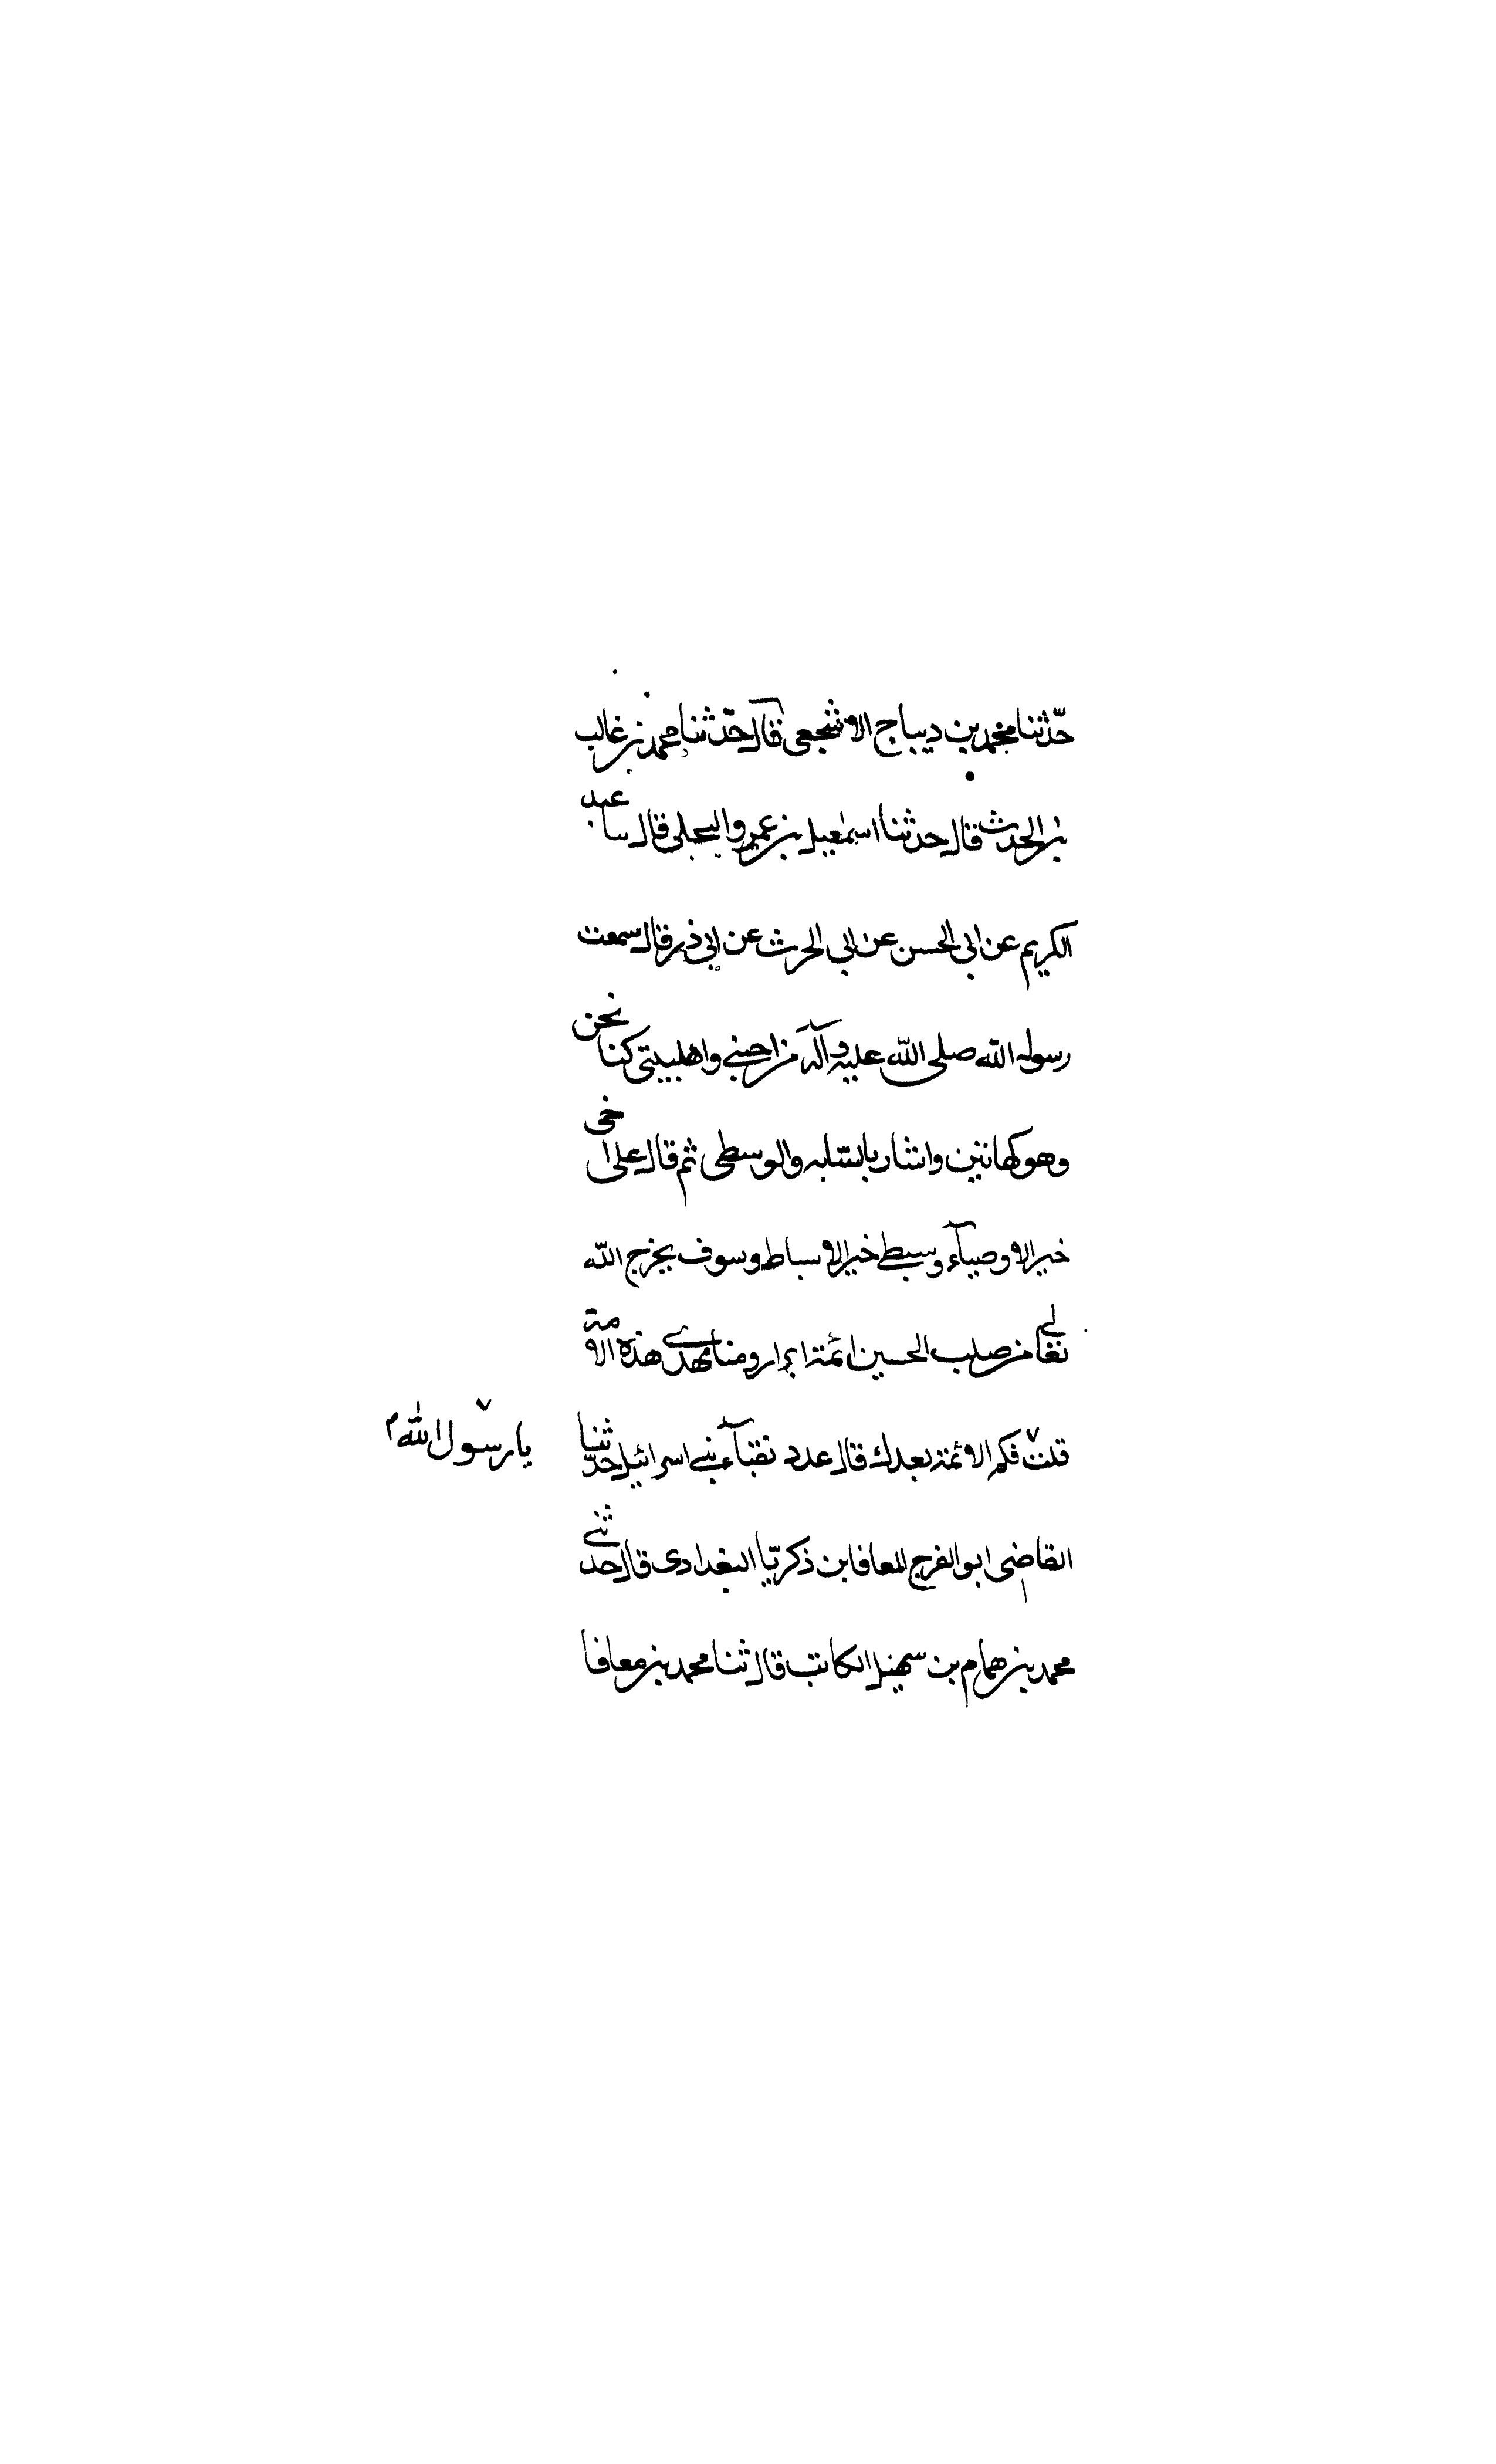 حدّثنا محمد بن ديباج الاشجعى قآل حدّثنا محمد بن غالب
بن الحرث قال حدثنا اسمعيل بن عمرو البجلى قال ثنا عبد
الكريم عن ابى الحسن عن ابى الحرث عن ابى ذر قال سمعت
رسول الله صلى الله عليه وآله من احبنى واهلبيتى كنا نحن
وهو كهاتين واشار بالسّبابه والوسطى ثم قال على اخى
خير الاوصيآء وسبطى خير الاسباط وسوف يخرج الله
تعالى من صلب الحسين ائمة ابرار ومنا مهدى هذه الامة
قلت فكم الائمة بعدك قال عدد نقبآء بنى اسرائيل حدّثنا
يا رسول الله م
القاضى ابو الفرج المعافا بن زكريّا البغدادى قال حدثنى
محمد بن همام بن سهيل الكاتب قال ثنا محمد بن معافا